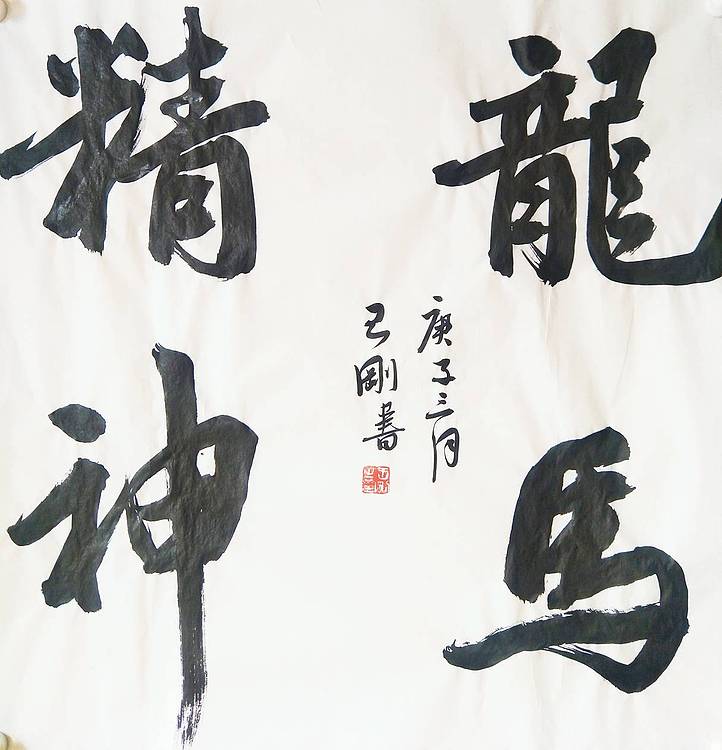 龍馬
精神
庚子三月
己剛書